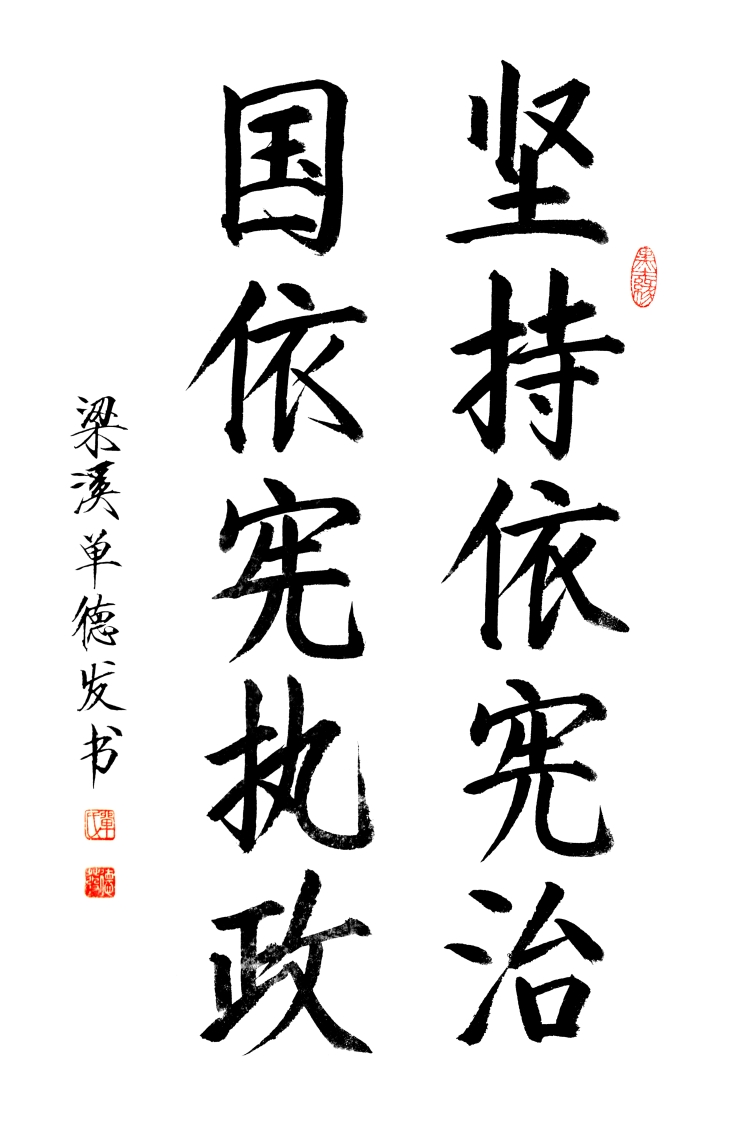 坚持依宪治
国依宪执政
梁溪单德发书